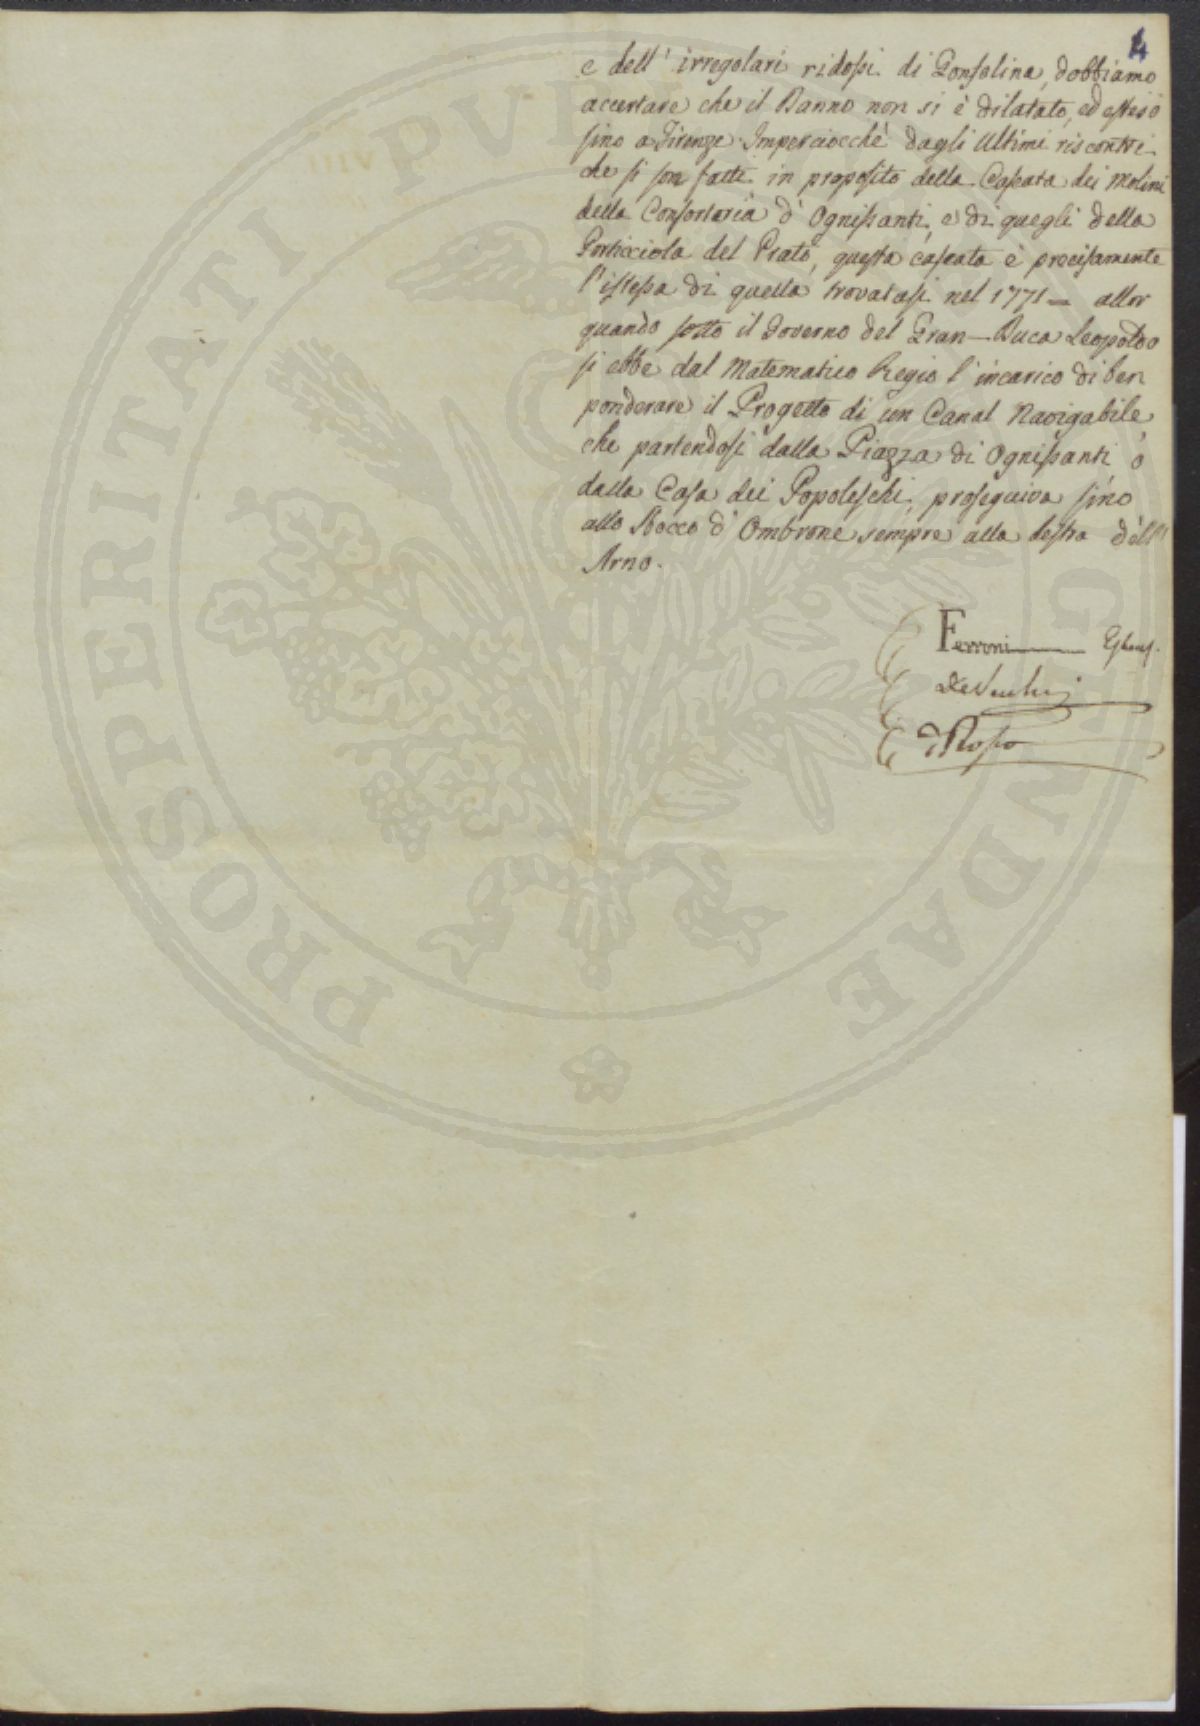 4
e dell' irregolari ridossi di Gonfolina, dobbiamo
accertare che il Danno non si è dilatato, ed esteso
sino a Firenze. Imperciocchè dagli Ultimi riscontri
che si son fatti in proposito della Cascata dei Molini
della Confortaria d' Ognissanti, e di quegli della
Porticciola del Prato, questa cascata è precisamente
l'istessa di quella trovatasi nel 1771 — allor
quando sotto il Governo del Gran-Duca Leopoldo
si ebbe dal Matematico Regio l'incarico di ben
ponderare il Progetto di un Canal Navigabile,
che partendosi dalla Piazza di Ognissanti, o
dalla Casa dei Popoleschi, proseguiva sino
allo Bocco d' Ombrone sempre alla destra dell'
Arno.
Ferroni
De Vecchi
Rosso
PROSPERITATI PVBLICAE AVGENDAE